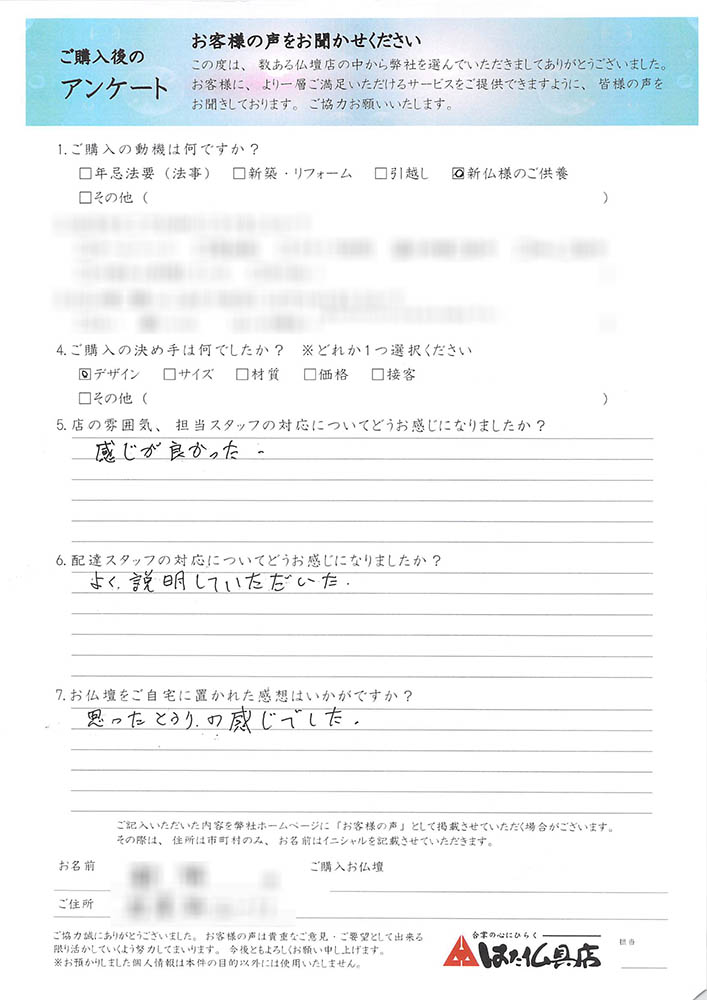 ご購入後の
アンケート
お客様の声をお聞かせください
この度は、数ある仏壇店の中から弊社を選んでいただきましてありがとうございました。
お客様に、より一層ご満足いただけるサービスをご提供できますように、皆様の声を
お聞きしております。ご協力お願いいたします。
1.ご購入の動機は何ですか？
□年忌法要（法事） □新築・リフォーム □引越し ☑新仏様のご供養
□その他（ ）
4.ご購入の決め手は何でしたか？ ※どれか1つ選択ください
☑デザイン □サイズ □材質 □価格 □接客
□その他（ ）
5.店の雰囲気、担当スタッフの対応についてどうお感じになりましたか？
感じが良かった。
6.配達スタッフの対応についてどうお感じになりましたか？
よく説明していただいた.
7.お仏壇をご自宅に置かれた感想はいかがですか？
思ったとうりの感じでした.
ご記入いただいた内容を弊社ホームページに「お客様の声」として掲載させていただく場合がございます。
その際は、住所は市町村のみ、お名前はイニシャルを記載させていただきます。
お名前 ご購入お仏壇
ご住所
ご協力誠にありがとうございました。お客様の声は貴重なご意見・ご要望として出来る
限り活かしていくよう努力してまいります。今後ともよろしくお願い申し上げます。
※お預かりしました個人情報は本件の目的以外には使用いたしません。
合掌の心にひらく
はた仏具店
担当